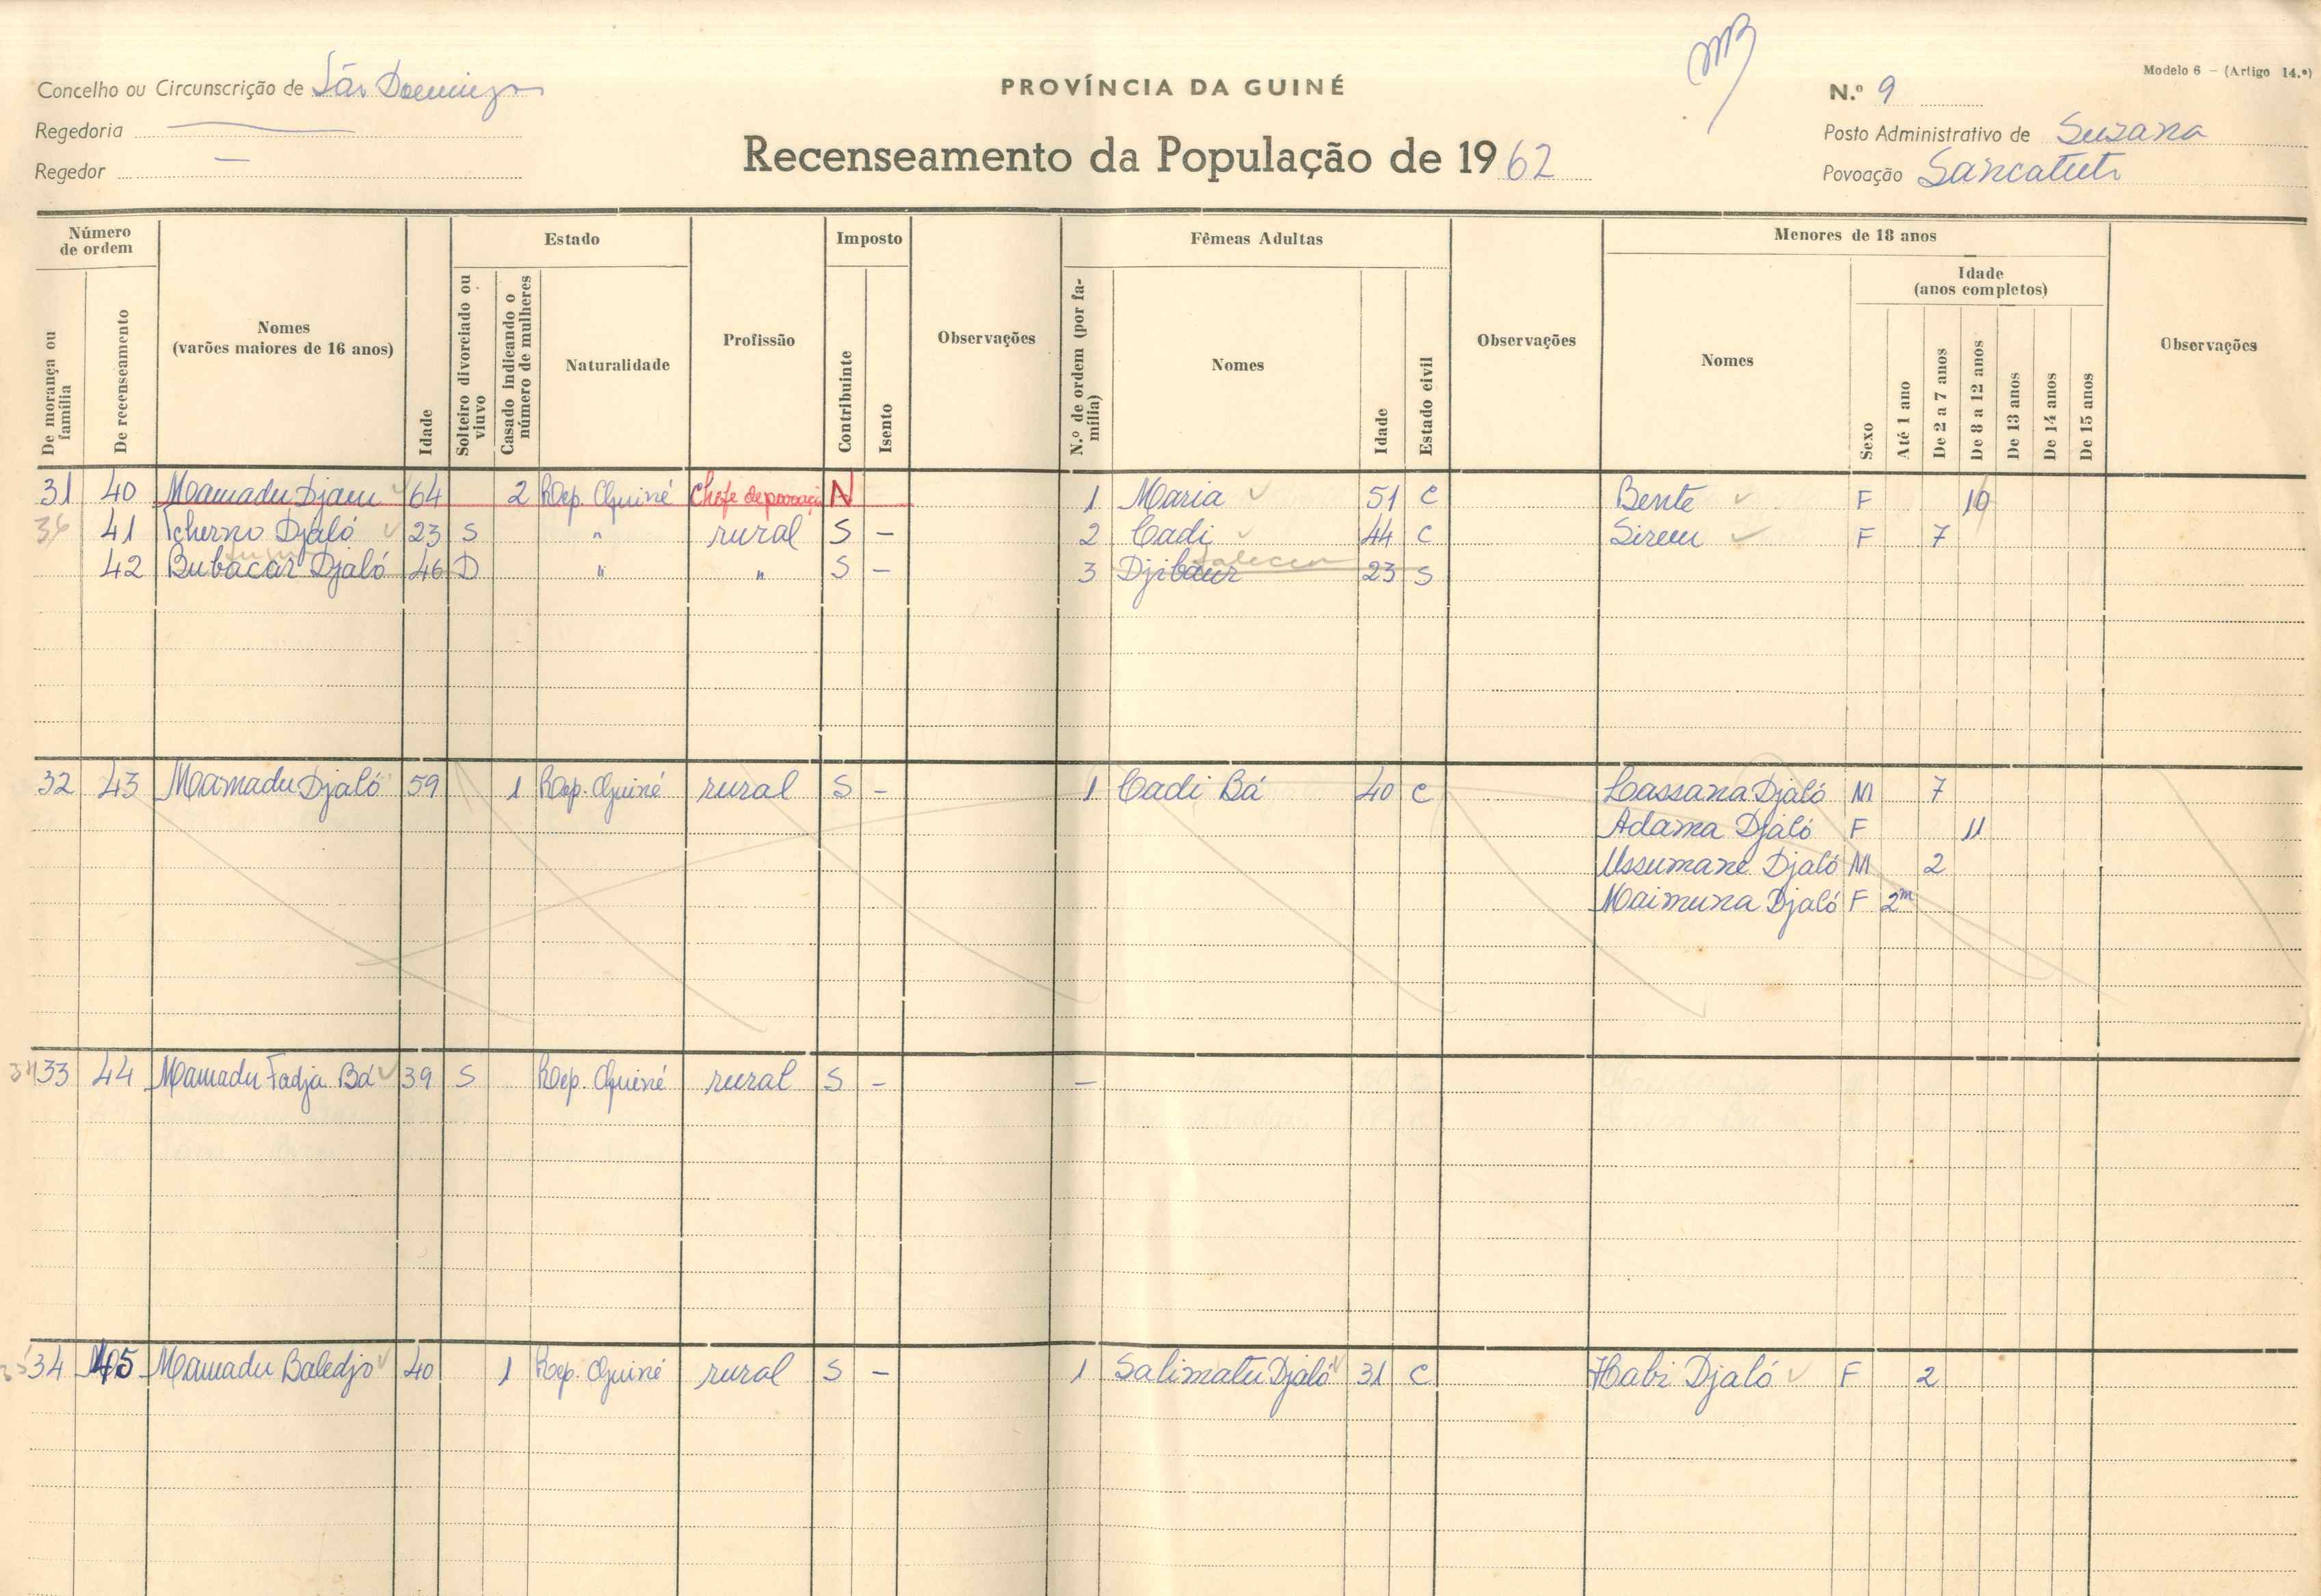 Modelo 6 – (Artigo 14.º)
Concelho ou Circunscrição de São Domingos
PROVÍNCIA DA GUINÉ
N.º 9
Regedoria —
Posto Administrativo de Suzana
Recenseamento da População de 1962
Regedor —
Povoação Sancatuti
Número de ordem
Estado
Imposto
Fêmeas Adultas
Menores de 18 anos
Idade (anos completos)
De morança ou família
De recenseamento
Nomes (varões maiores de 16 anos)
Idade
Solteiro divorciado ou viuvo
Casado indicando o número de mulheres
Naturalidade
Profissão
Contribuinte
Isento
Observações
N.º de ordem (por família)
Nomes
Idade
Estado civil
Observações
Nomes
Sexo
Até 1 ano
De 2 a 7 anos
De 8 a 12 anos
De 13 anos
De 14 anos
De 15 anos
Observações
31 40 Mamadu Djau 64 2 Rep. Guiné Chefe de povoação N 1 Maria 51 C Bente F 10
41 Tcherno Djaló 23 S " rural S – 2 Cadi 44 C Sireu F 7
42 Bubacar Djaló 46 D " " S – 3 Djibaur 23 S
faleceu
32 43 Mamadu Djaló 59 1 Rep. Guiné rural S – 1 Cadi Bá 40 C Lassana Djaló M 7
Adama Djaló F 11
Ussumane Djaló M 2
Maimuna Djaló F 2m
33 44 Mamadu Fadja Bá 39 S Rep. Guiné rural S – –
34 45 Mamadu Baledjo 40 1 Rep. Guiné rural S – 1 Salimatu Djaló 31 C Habi Djaló F 2